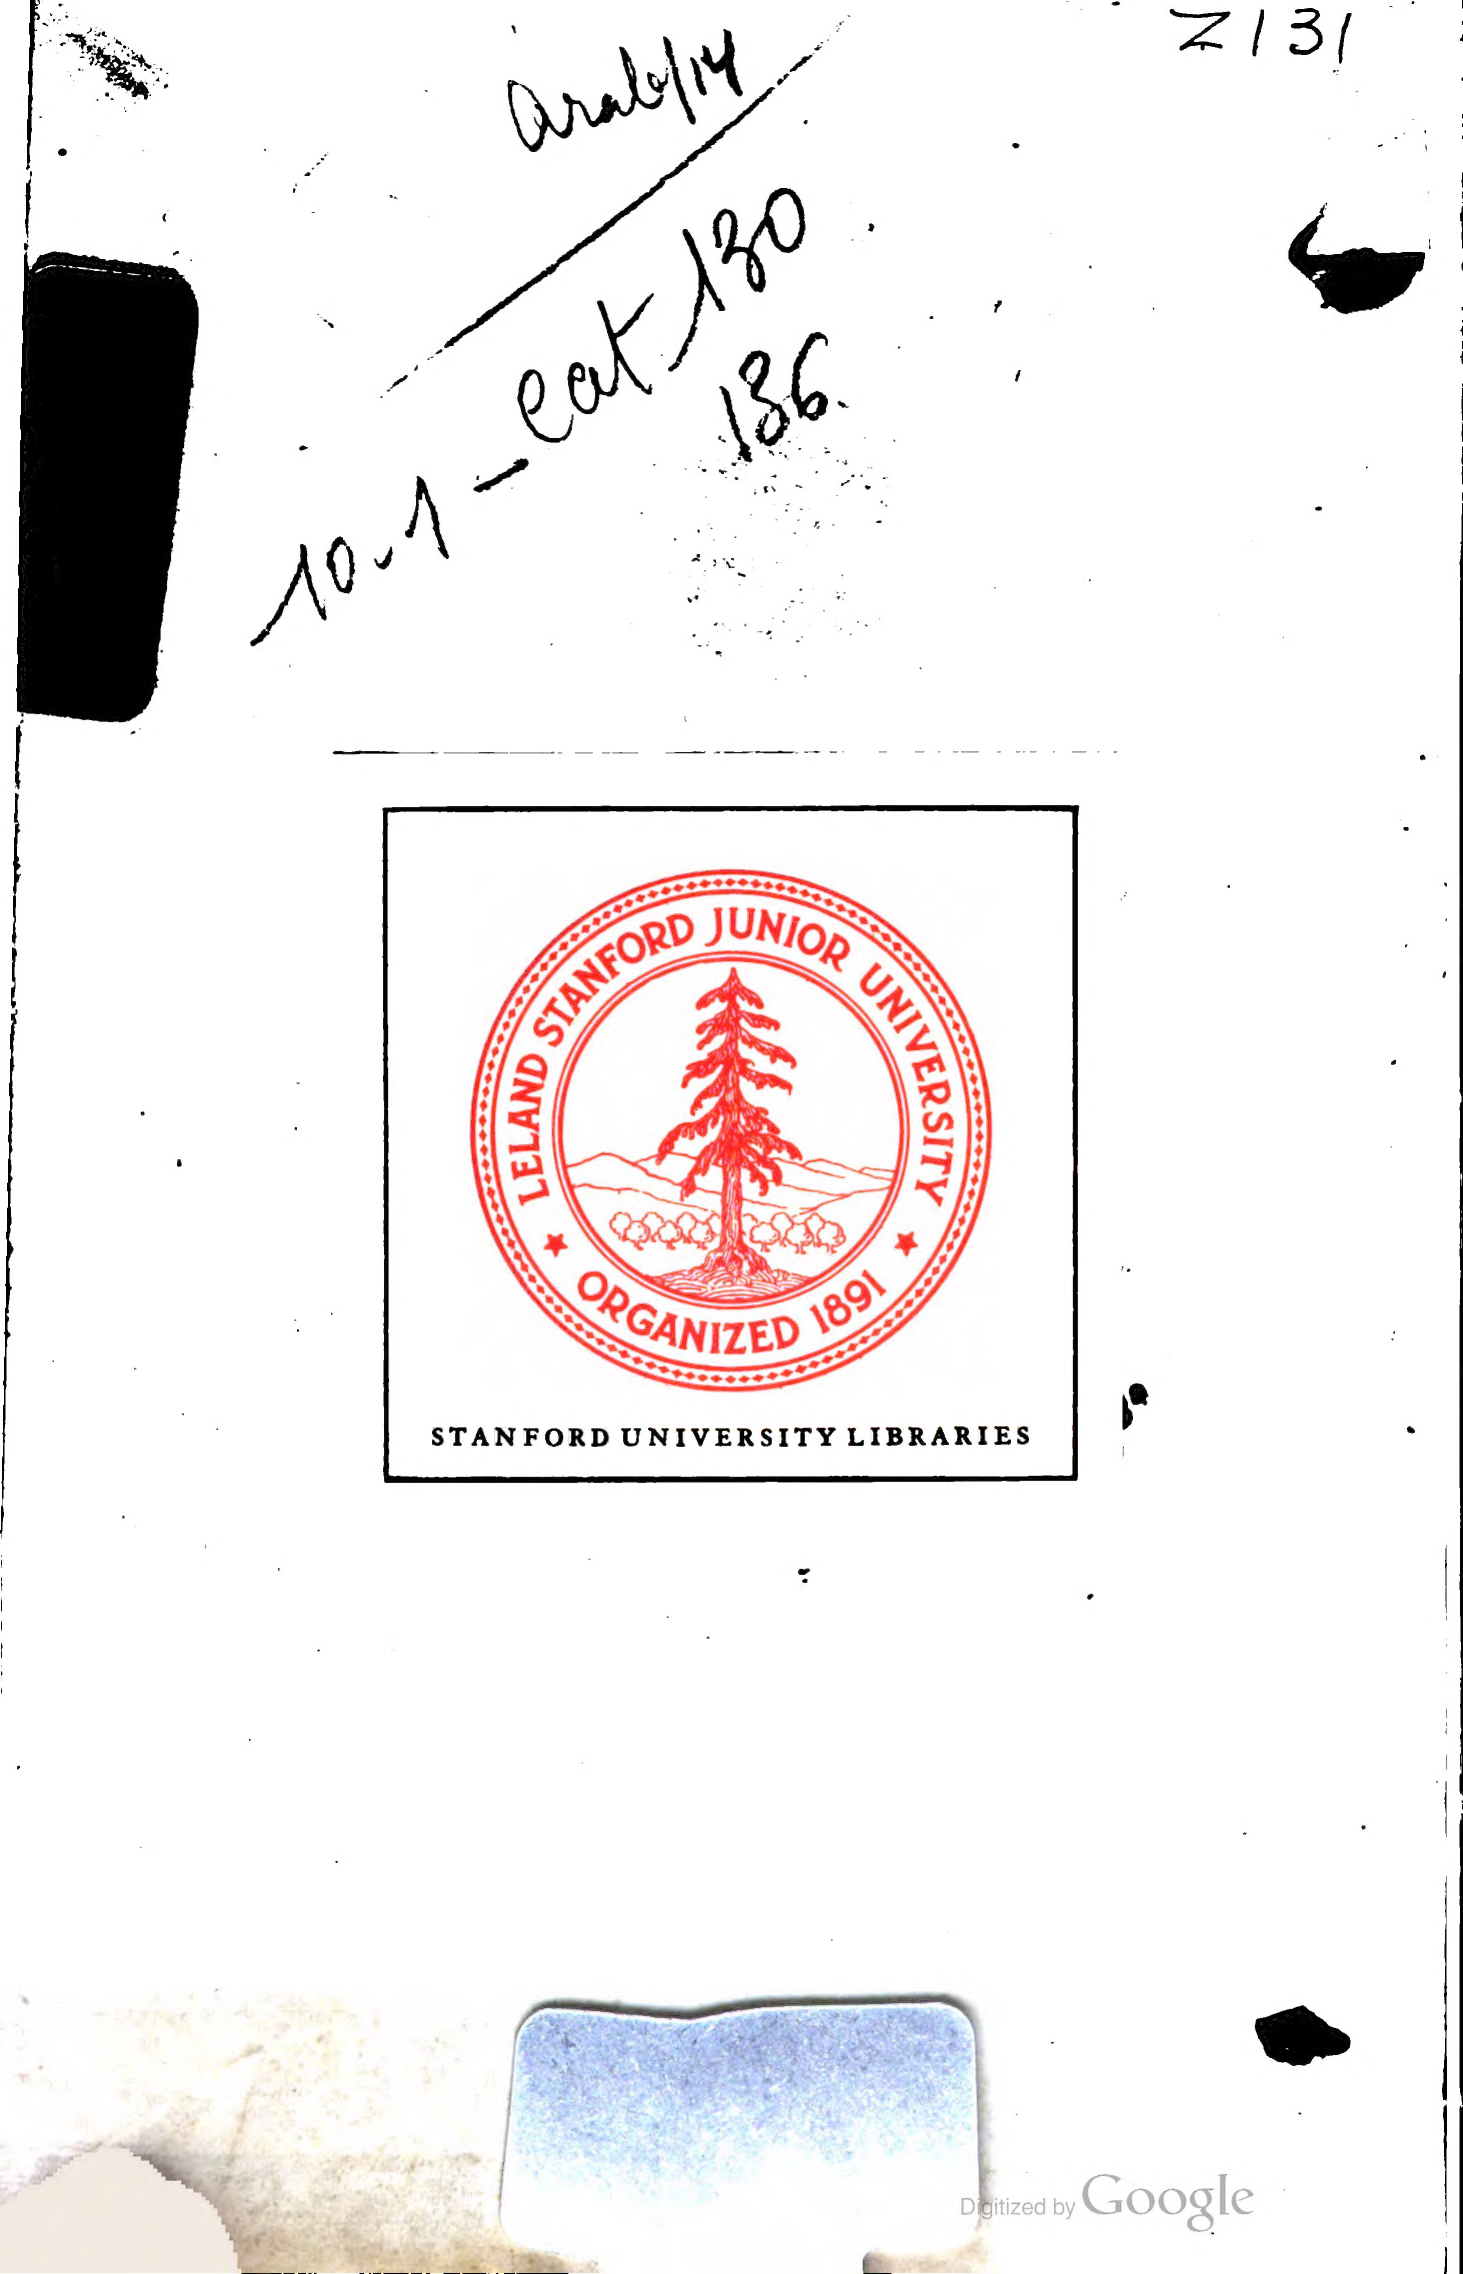 Z131
arab/14
10-1 - cat 130
136.
LELAND STANFORD JUNIOR UNIVERSITY
ORGANIZED 1891
STANFORD UNIVERSITY LIBRARIES
Digitized by Google